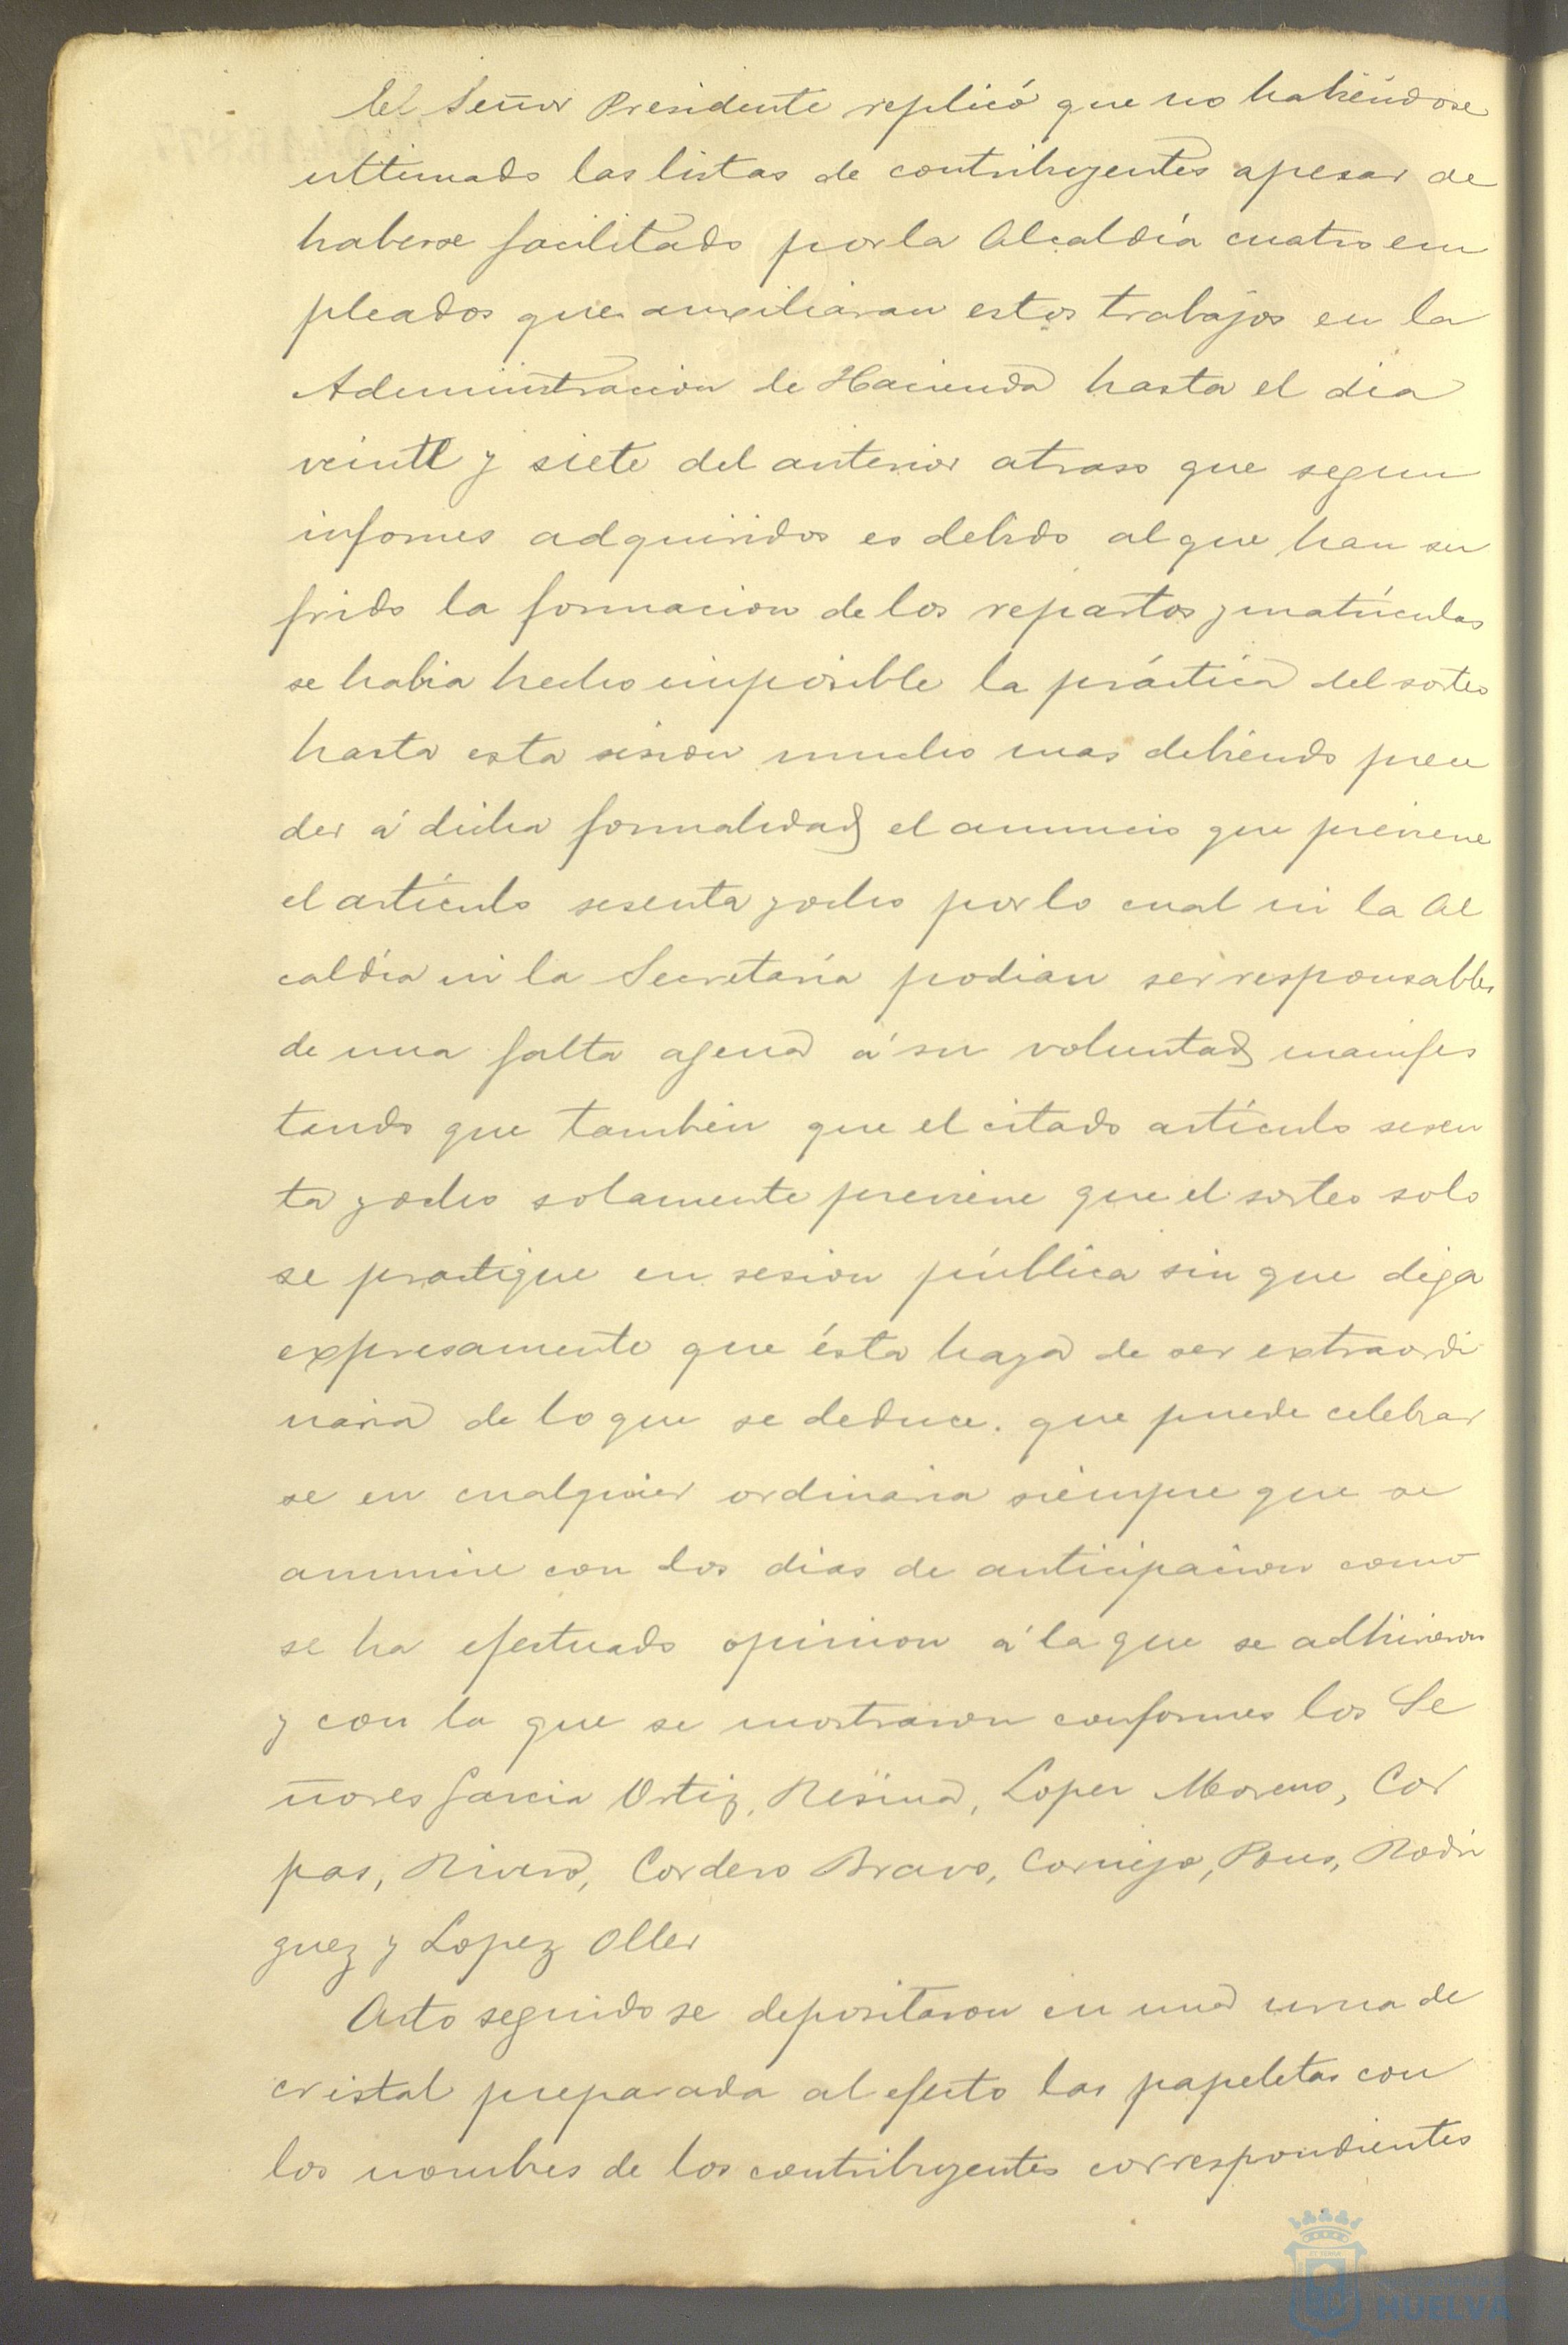 El Señor Presidente replicó que no habiéndose
ultimado las listas de contribuyentes apesar de
haberse facilitado por la Alcaldía cuatro em
pleados que auxiliaran estos trabajos en la
Administracion de Hacienda hasta el dia
veinte y siete del anterior atraso que segun
informes adquiridos es debido al que han su
frido la formacion de los repartos y matrículas
se habia hecho imposible la práctica del sorteo
hasta esta sesion mucho mas debiendo prece
der á dicha formalidad el anuncio que previene
el artículo sesenta y ocho por lo cual ni la Al
caldía ni la Secretaría podian ser responsables
de una falta agena á su voluntad manifes
tando que tambien que el citado artículo sesen
ta y ocho solamente previene que el sorteo solo
se practique en sesion pública sin que diga
expresamente que ésta haya de ser extraordi
naria de lo que se deduce. que puede celebrar
se en cualquier ordinaria siempre que se
anuncie con dos dias de anticipacion como
se ha efectuado opinion á la que se adhirieron
y con la que se mostraron conformes los Se
ñores Garcia Ortiz, Resina, Lopez Moreno, Cor
pas, Rivero, Cordero Bravo, Cornejo, Pons, Rodri
guez y Lopez Oller
Acto seguido se depositaron en una urna de
cristal preparada al efecto las papeletas con
los nombres de los contribuyentes correspondientes
HUELVA